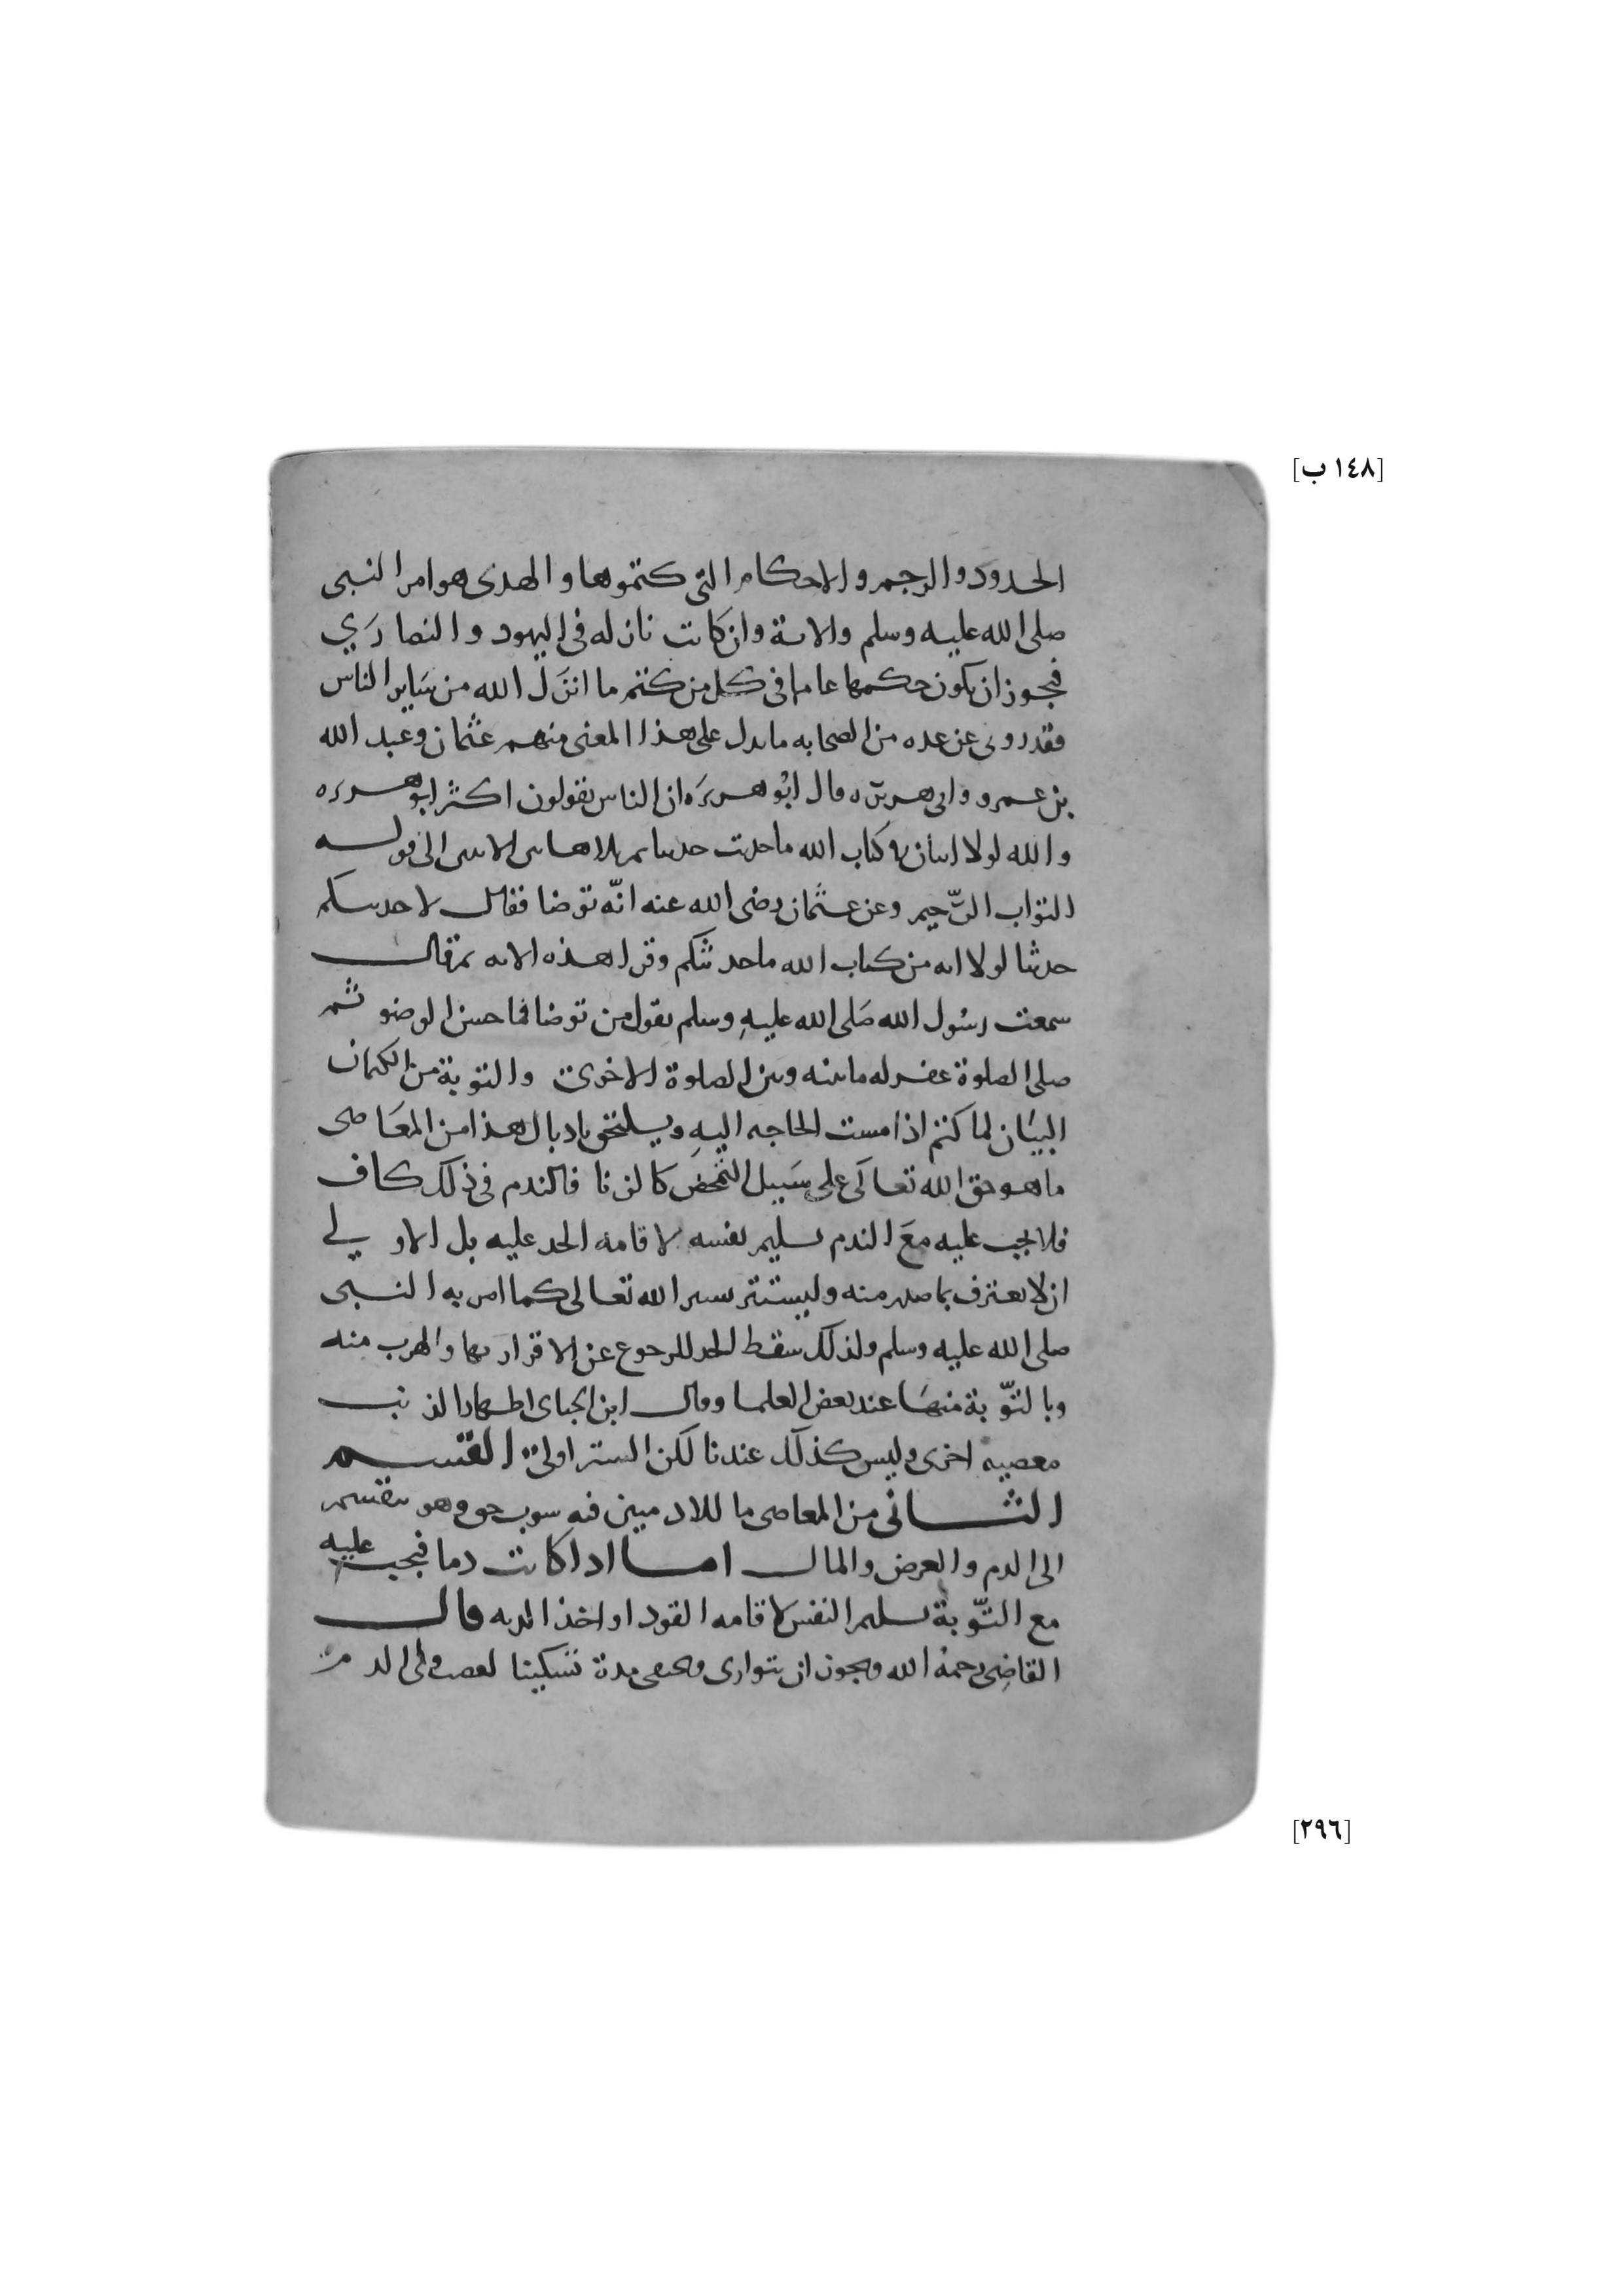 [١٤٨ ب]
الحدود والرجم والاحكام التي كتموها والهدى هو امر النبي
صلى الله عليه وسلم والاية وان كانت نازله في اليهود والنصارَي
فيجوز ان يكون حكمها عاما في كل من كتم ما انزَل الله من سَاير الناس
فقد روى عن عده من الصحابه ما يدل على هذا المعنى منهم عثمان وعبد الله
بن عمرو وابى هريره قال ابُو هريرَه ان الناس يقولون اكثر ابو هريره
والله لولا ايتان في كتاب الله ما حدثت حديثا ثم تلا هاتين الايتين الى قوله
التواب الرّحيم وعن عثمان رضى الله عنه انّه توضا فقال لاحدثنكم
حديثا لولا ايه من كتاب الله ما حدثتكم وقرا هذه الايه ثم قال
سمعت رسُول الله صَلى الله عليهِ وسلم يقول من توضا فاحسن الوضو ثم
صلى الصلوة غفر له ما بينه وبين الصلوة الاخرى والتوبة من الكتمان
البيَان لما كتم اذا مست الحاجه اليهِ ويلتحق باذيال هذا من المعَاصى
ما هو حق الله تعالَى على سَبيل التمحض كالزنا فالندم في ذلك كاف
فلا يجب عليه معَ الندم تسليم نفسه لاقامه الحد عليه بل الاولي
ان لا يعترف بما صدر منه وليستتر بستر الله تعالى كما امر به النبى
صلى الله عليه وسلم ولذلك سقط الحد للرجوع عن الاقرار بها والهرب منه
وبالتّوبة منهَا عند بعض العلما وقال ابن الجباى اظهار الذنب
معصيه اخرى وليس كذلك عندنا لكن الستر اولى القسم
الثانى من المعاصى ما للادميين فيه شوب حق وهو ينقسم
الى الدم والعرض والمال اما اذا كانت دما فيجب عليه
مع التّوبة تسليم النفس لاقامه القود او اخذ الديه قال
القاضِى رحمهُ الله ويجوز ان يتوارى ويختفى مدة تسكينا لغضب ولى الدم
[٢٩٦]